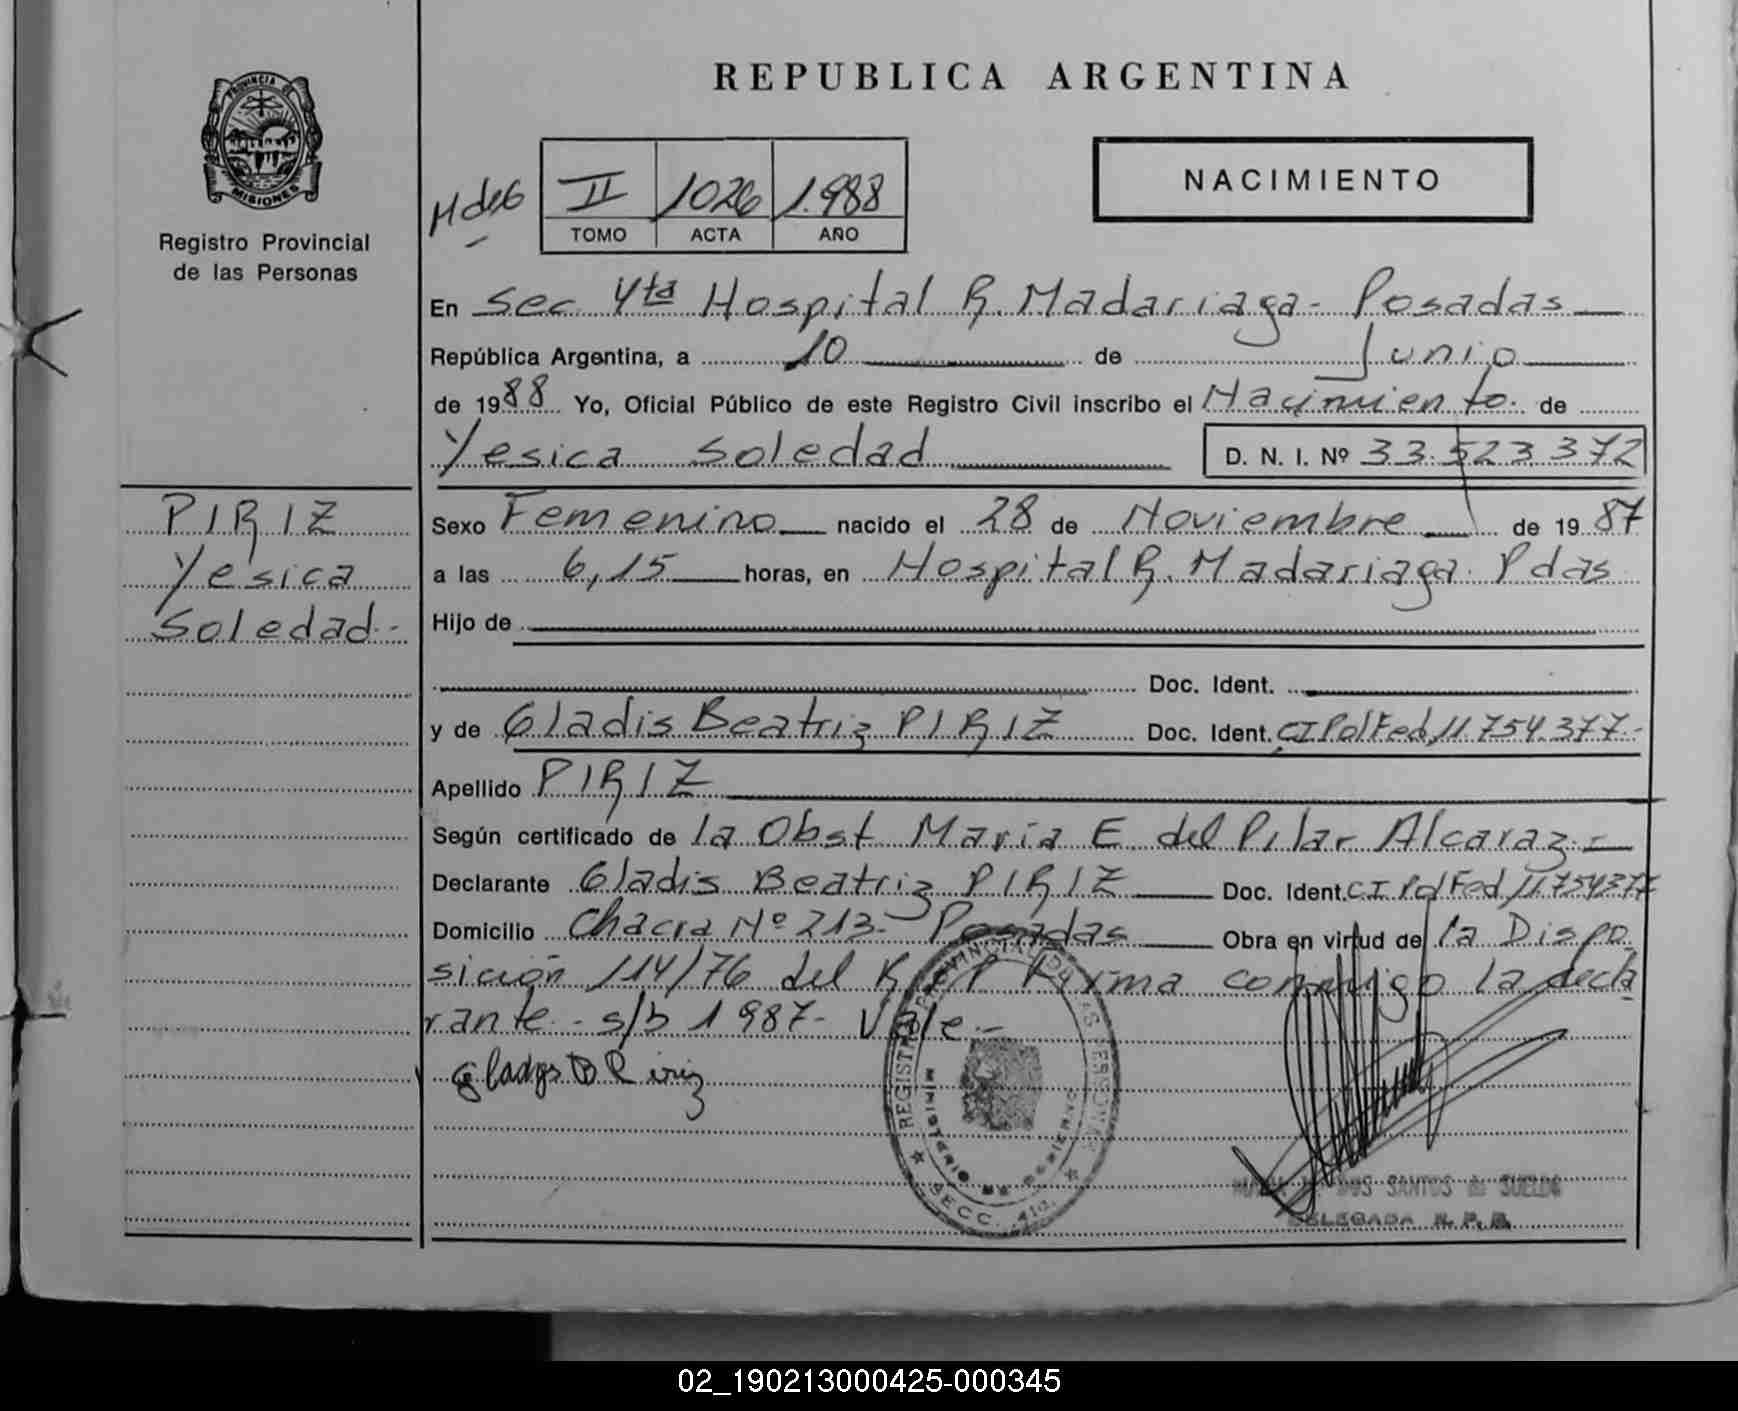 REPUBLICA ARGENTINA
PROVINCIA DE
MISIONES
Registro Provincial
de las Personas
NACIMIENTO
II 1026 1.988
TOMO ACTA AÑO
En Sec. 4ta Hospital R. Madariaga - Posadas
República Argentina, a 10 de Junio
de 1988 Yo, Oficial Público de este Registro Civil inscribo el Nacimiento de
Yesica Soledad D. N. I. Nº 33.523.372
PIRIZ
Yesica
Soledad.-
Sexo Femenino nacido el 28 de Noviembre de 1987
a las 6,15 horas, en Hospital R. Madariaga. Pdas
Hijo de
Doc. Ident.
y de Gladis Beatriz PIRIZ Doc. Ident. CI Pol Fed, 11.754.377.-
Apellido PIRIZ
Según certificado de la Obst. Maria E. del Pilar Alcaraz.-
Declarante Gladis Beatriz PIRIZ Doc. Ident. C.I Pol Fed, 11.754377
Domicilio Chacra Nº 213- Posadas Obra en virtud de la Dispo
sición 114/76 del Firma conmigo la decla
rante.- s/b 1987- Vale.-
Gladys B Piriz
REGISTRO PROVINCIAL DE LAS PERSONAS
MINISTERIO DE GOBIERNO
SECC. 4ta.
DOS SANTOS de SUELDO
DELEGADA R. P. P.
02_190213000425-000345